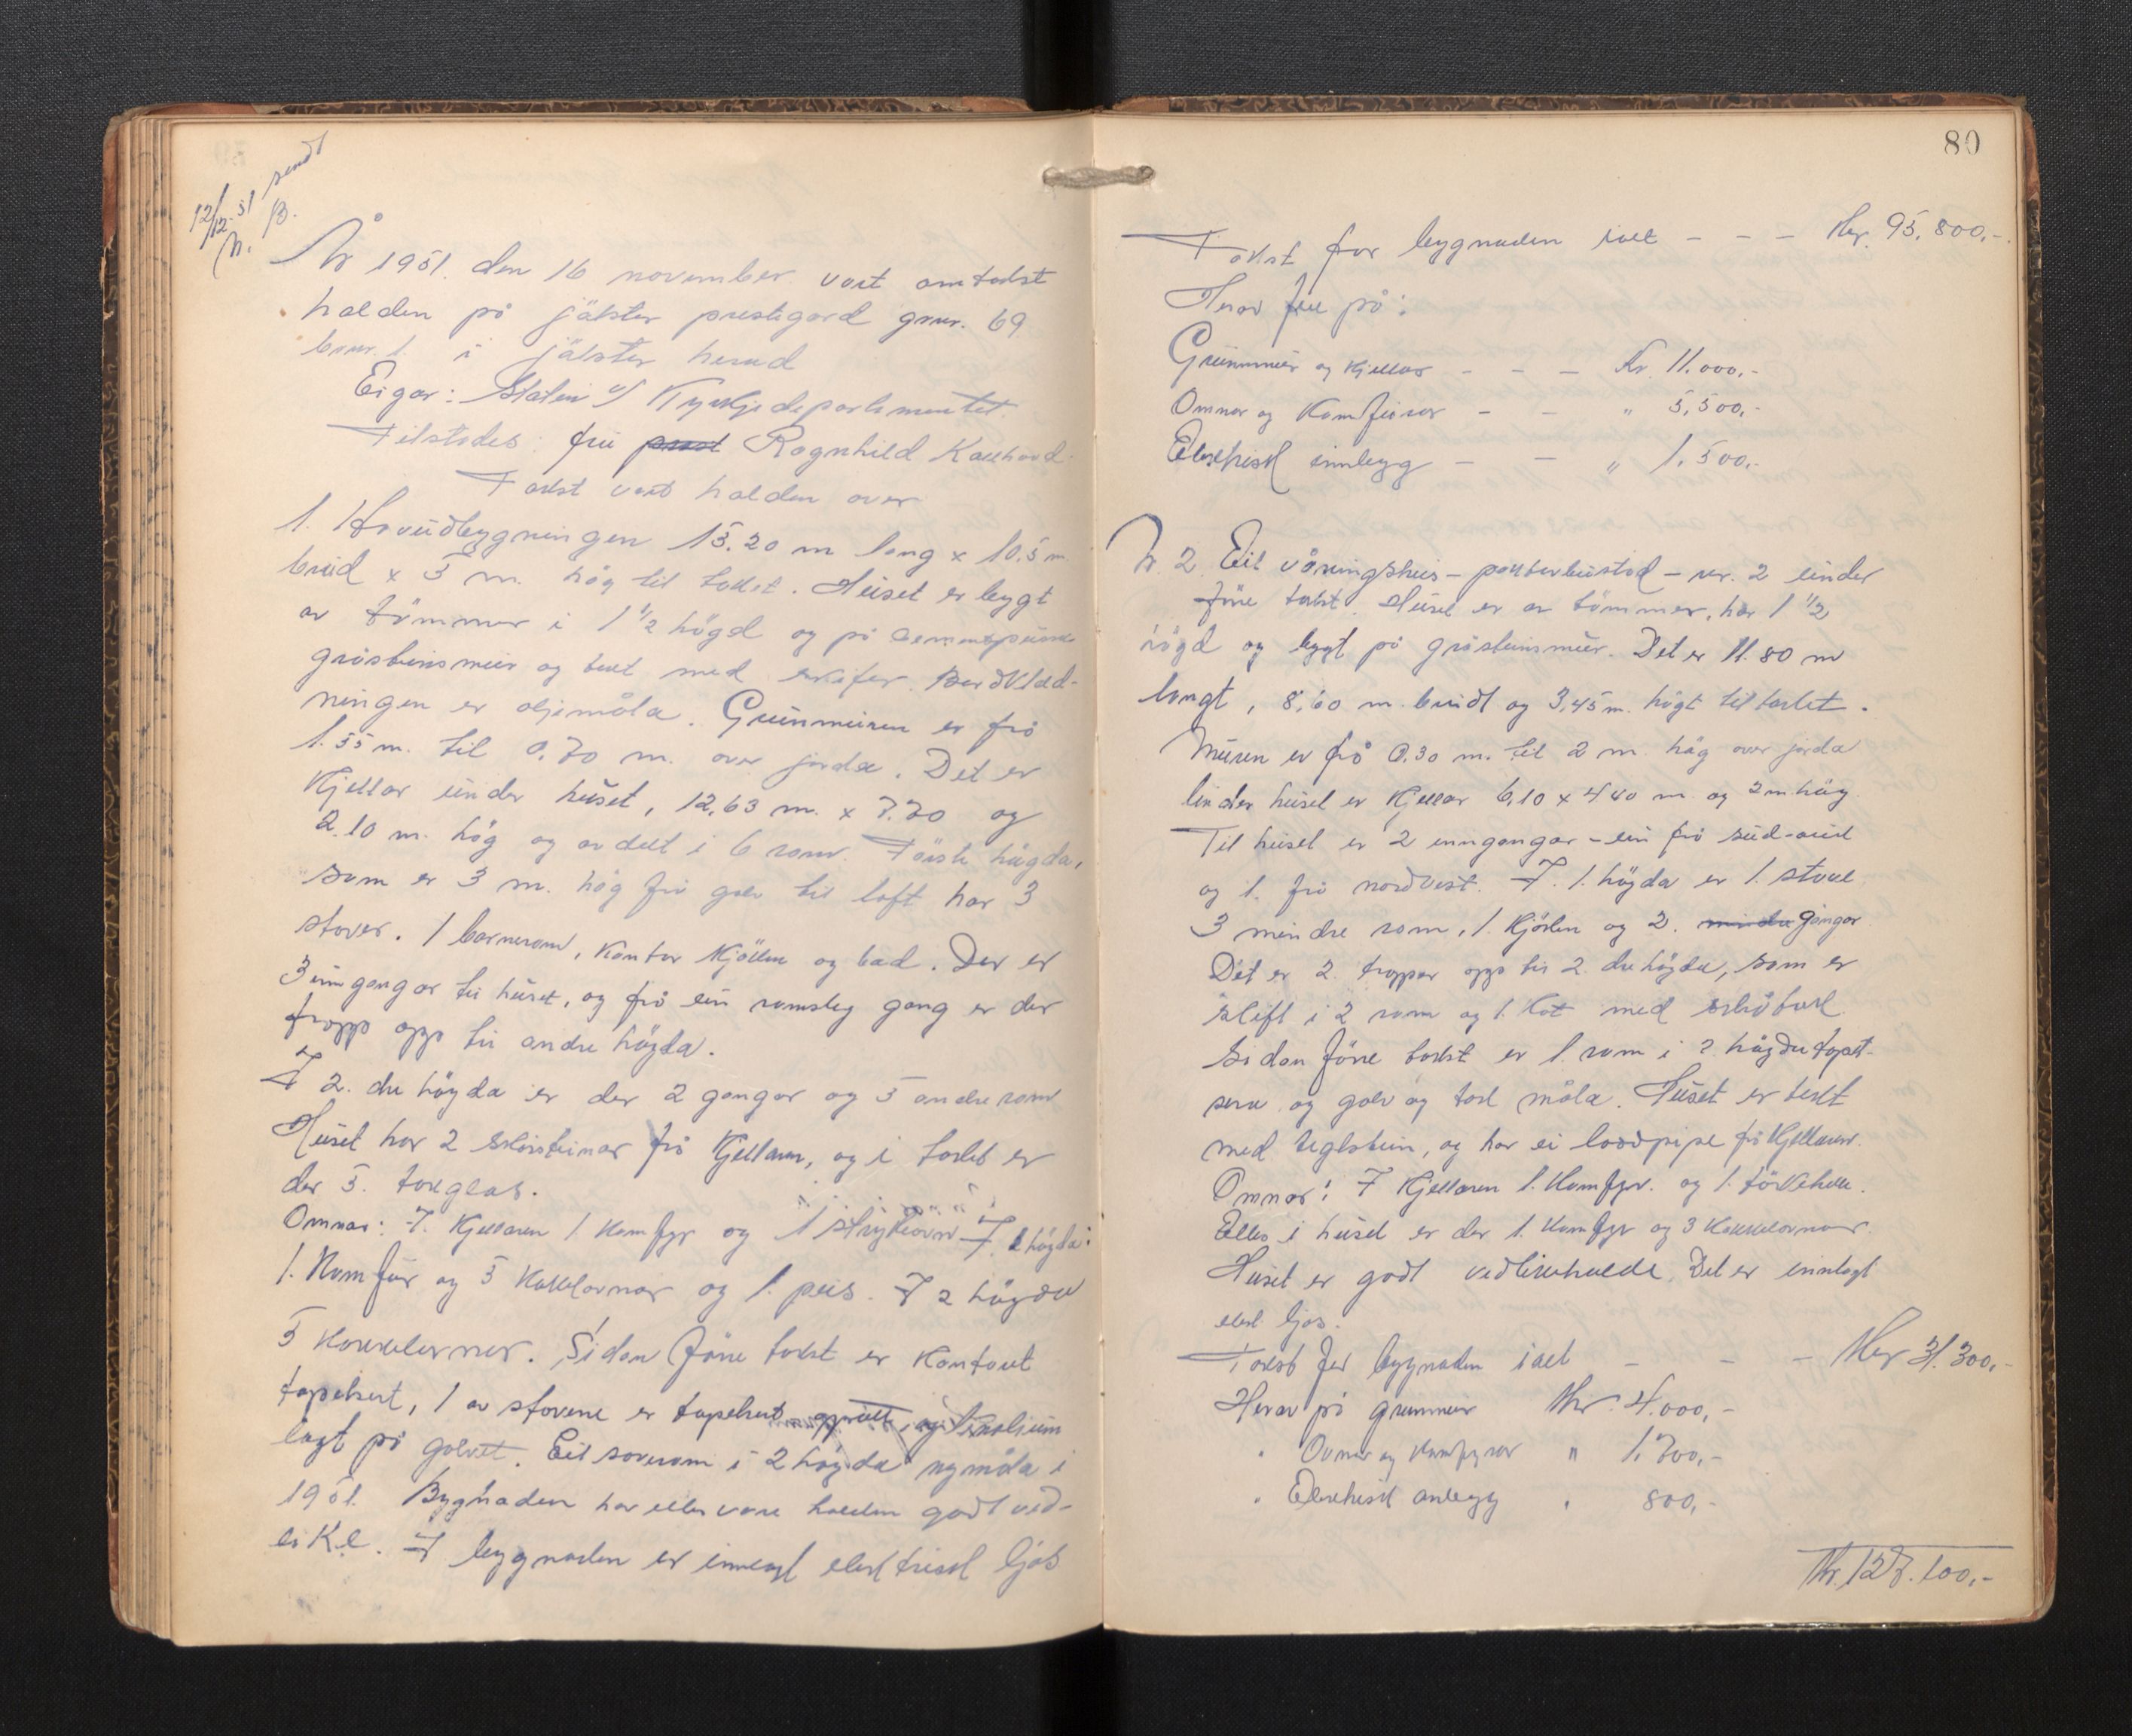 12/12.51 sendt
N. B.
År 1951. den 16 november vart omtakst
halden på jölster prestegard gnr. 69
bnr. 1. i jölster herad
Eigar: Staten v/ Kyrkjedepartementet.
Tilstades: fru prost Ragnhild Kaarhood
Takst vart halden over
1. Hovudbygningen 15.20 m lang x 10.5 m
breid x 5 m. høg til taket. Huset er bygt
av tömmer i 1 1/2 högd og på
gråsteinsmur og tekt med skifer. Bordklæd-
ningen er oljemåla. Grunnmuren er frå
1.55 m. til 0.70 m. over jorda. Det er
Kjellar under huset, 12,63 m. x 7.70 og
2.10 m. høg og avdelt i 6 rom. Første høgda,
som er 3 m. høg frå golv til loft har 3
stover. 1 barnerom, kontor kjöken og bad. Der er
3 inngangar til huset, og frå ein romsleg gang er der
tropp opp til andre høgda.
I 2. dre høgda er der 2 gangar og 5 andre rom
Huset har 2 skorsteinar frå Kjellaren, og i taket er
der 5. takglas.
Omnar: I. Kjellaren 1 komfyr og 1 strykeovn I. 1 høgda:
1. Komfur og 5 kakkelovnar og 1. peis. I 2 høgda
5 kakkelovner. Sidan förre takst er kontoret
tapetsert, 1 av stovene er tapetsert og linolium
lagt på golvet. Eit soverom i 2 høgda nymåla i
1951. Bygnaden har elles vore halden godt ved-
like. I bygnaden er innlagt elektrisk ljos
80
Takst for bygnaden ialt - - - Kr. 95.800,-.
Herav fell på:
Grunnmur og Kjellar - - - Kr. 11.000,-
Omnar og Komfurar - - " 5,500,-
Elektrisk innlegg - - " 1.500,-
Nr. 2. Eit våningshus - forpaktarbustad - nr. 2 under
förre takst. Huset er av tömmer, har 1 1/2
högd og bygt på gråsteinsmur. Det er 11.80 m
langt, 8,60 m. breidt og 3,45 m. högt til taket.
Muren er frå 0.30 m. til 2 m. høg over jorda
Under huset er Kjellar 6,10 x 4 40 m. og 2 m. høg
Til huset er 2 inngangar - ein frå sud-aust
og 1. frå nordvest. I. 1. högda er 1. stove
3 mindre rom, 1. Kjöken og 2. mindre gangar
Det er 2. troppar opp til 2. dre høgda, som er
skift i 2 rom og 1. kot med skråtak
Sidan förre takst er 1. rom i 2. høgda tapet-
sera og golv og tak måla. Huset er tekt
med teglstein, og har ei loodpipe frå Kjellaren.
Omnar: I Kjellaren 1. Komfyr. og 1. törkehelle.
Elles i huset er der 1. komfyr og 3 kakkelovnar.
Huset er godt vedlikehalde. Det er innlagt
elek. ljos.
Takst for bygnaden ialt - - - Kr 31.300,-
Herav på grunnmur Kr. 4.000,-
" Ovnar og Komfyrar " 1.700,-
" Elektrisk anlegg " 800,-
Kr. 127.100,-